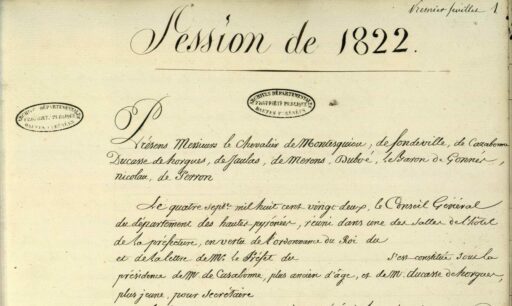 Premier feuillet 1
Session de 1822.
ARCHIVES DÉPARTEMENTALES
PROPRIÉTÉ PUBLIQUE
HAUTES PYRÉNÉES
ARCHIVES DÉPARTEMENTALES
PROPRIÉTÉ PUBLIQUE
HAUTES PYRÉNÉES
Présens Messieurs le Chevalier de Montesquiou, de fondeville, de Cazabonne
Ducasse de horgues, de Jaulas, de Mesens, Duboé, le Baron de Gonnès,
nicolau, de Perron
Le quatre sept.^e mil huit cent vingt deux, le Conseil Général
du département des hautes pyrénées, réuni dans une des salles de l'hôtel
de la préfecture, en vertu de l'ordonnance du Roi du
et de la lettre de M. le Préfet du s'est constitué sous la
présidence de M. de Cazabonne, plus ancien d'âge, et de M. ducasse de horgues,
plus jeune, pour secrétaire